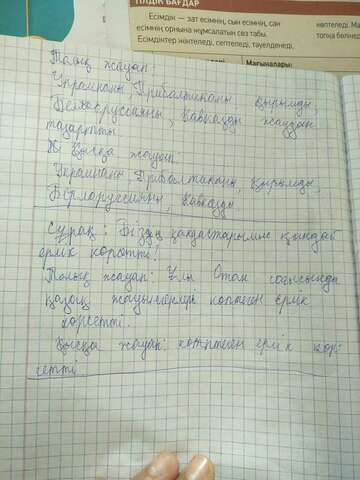 ТІЛДІК БАҒДАР
Есімдік — зат есімнің, сын есімнің, сан
есімнің орнына жұмсалатын сөз табы.
Есімдіктер жіктеледі, септеледі, тәуелденеді,
көптеледі. Ма
топқа бөлінед
Мағыналары:
Толық жауап:
Украинаны Прибалтиканы, Қырымды
Белоруссияны, Кавказды жаудан
тазартты.
Қысқа жауап:
Украинаны, Прибалтиканы, Қырымды,
Бірлоруссияны, Кавказды
Сұрақ: Біздің қандастарымыз қандай
ерлік көрсетті?
Толық жауап: Ұлы Отан соғысында
қазақ жауынгерлері көптеген ерлік
көрсетті.
Қысқа жауап: көптеген ерлік көр-
сетті